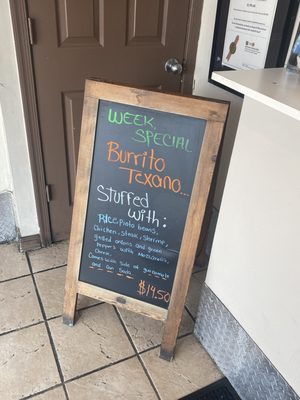 WEEK.
SPECIAL
Burrito
Texano...
Stuffed
with:
Rice, pinto beans,
Chicken, steak, shrimp,
grilled onions and green
peppers with Mozzarella
Cheese.
Comes with side of guacamole
and Can Soda
$14.50